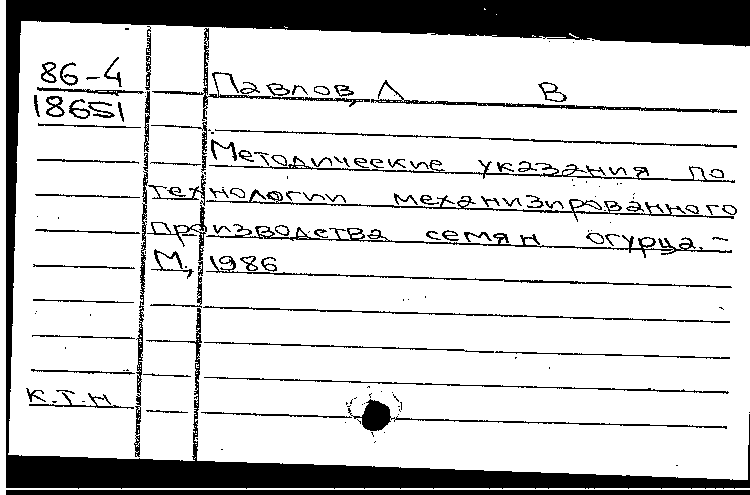 86-4
18651
Павлов, Л В
Методические указания по
технологии механизированного
производства семян огурца.-
М., 1986
к.т.н.